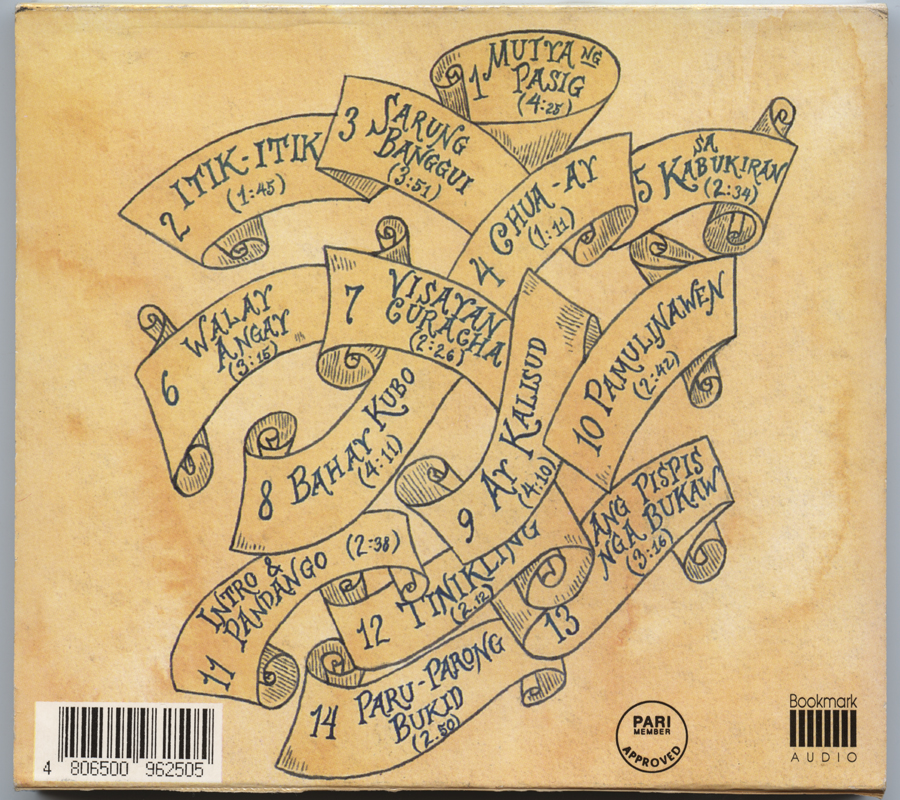 1 MUTYA NG
PASIG
(4:25)
2 ITIK-ITIK
(1:45)
3 SARUNG
BANGGUI
(3:51)
4 CHUA-AY
(1:11)
5 SA
KABUKIRAN
(2:34)
6 WALAY
ANGAY
(3:15)
7 VISAYAN
CURACHA
(2:26)
8 BAHAY KUBO
(4:11)
9 AY KALISUD
(4:10)
10 PAMULINAWEN
(2:42)
11 INTRO &
PANDANGO (2:38)
12 TINIKLING
(2:12)
13 ANG PISPIS
NGA BUKAW
(3:16)
14 PARU-PARONG
BUKID
(2:50)
4 806500 962505
PARI
MEMBER
APPROVED
Bookmark
AUDIO